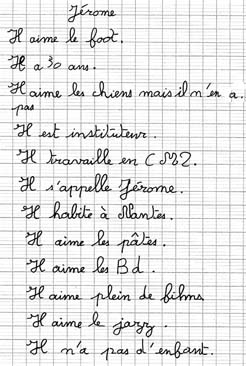 Jérome
Il aime le foot.
Il a 30 ans.
Il aime les chiens mais il n'en a.
pas
Il est instituteur.
Il travaille en CM2.
Il s'appelle Jérome.
Il habite à Nantes.
Il aime les pâtes.
Il aime les Bd.
Il aime plein de films
Il aime le jazz.
Il n'a pas d'enfant.